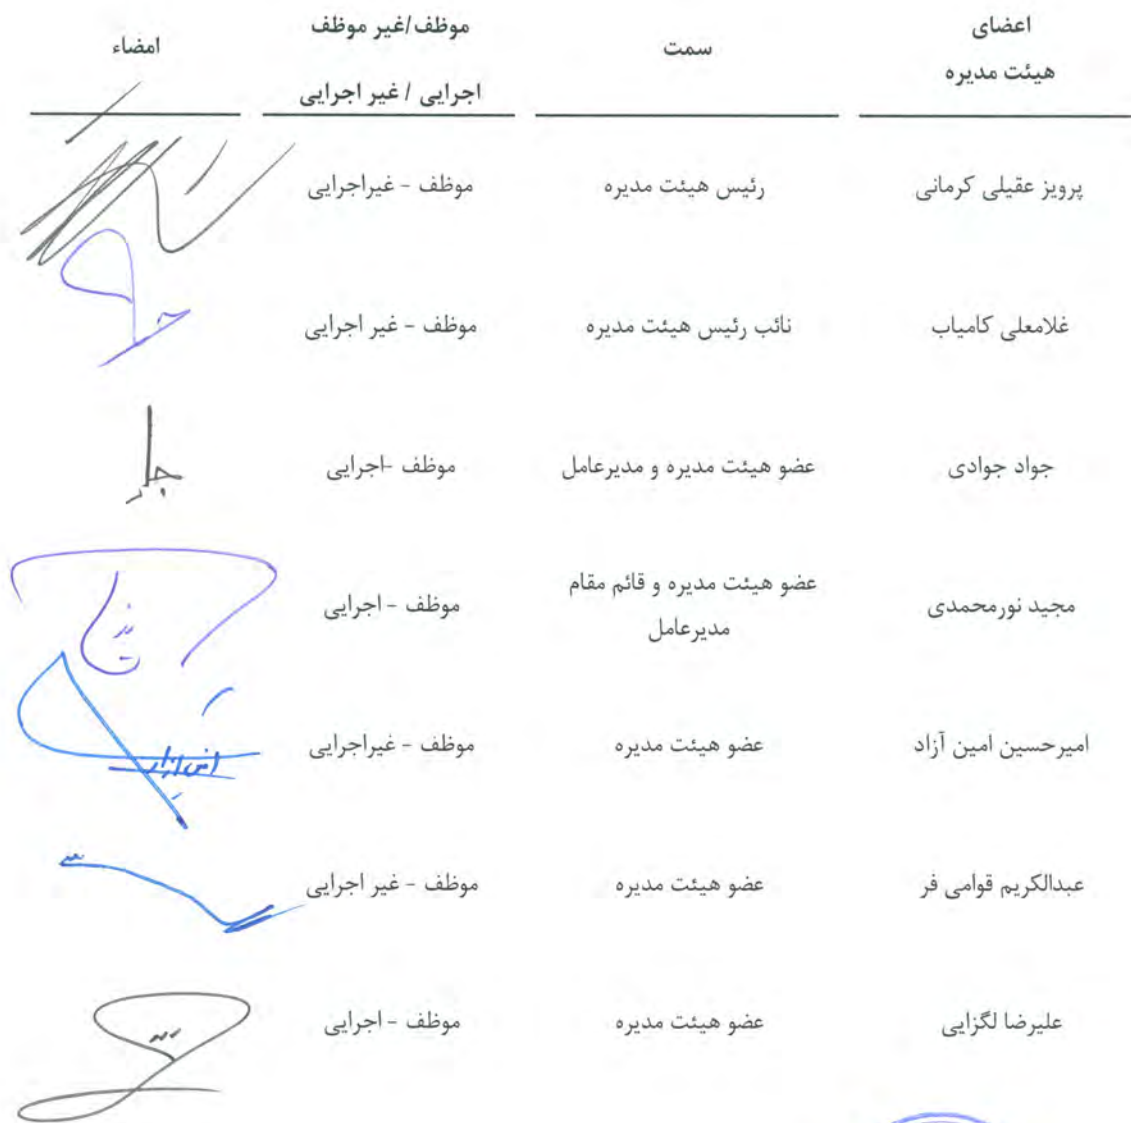 اعضای
هیئت مدیره
سمت
موظف/غیر موظف
اجرایی / غیر اجرایی
امضاء
پرویز عقیلی کرمانی
رئیس هیئت مدیره
موظف - غیراجرایی
غلامعلی کامیاب
نائب رئیس هیئت مدیره
موظف - غیر اجرایی
جواد جوادی
عضو هیئت مدیره و مدیرعامل
موظف -اجرایی
مجید نورمحمدی
عضو هیئت مدیره و قائم مقام
مدیرعامل
موظف - اجرایی
امیرحسین امین آزاد
عضو هیئت مدیره
موظف - غیراجرایی
عبدالکریم قوامی فر
عضو هیئت مدیره
موظف - غیر اجرایی
علیرضا لگزایی
عضو هیئت مدیره
موظف - اجرایی